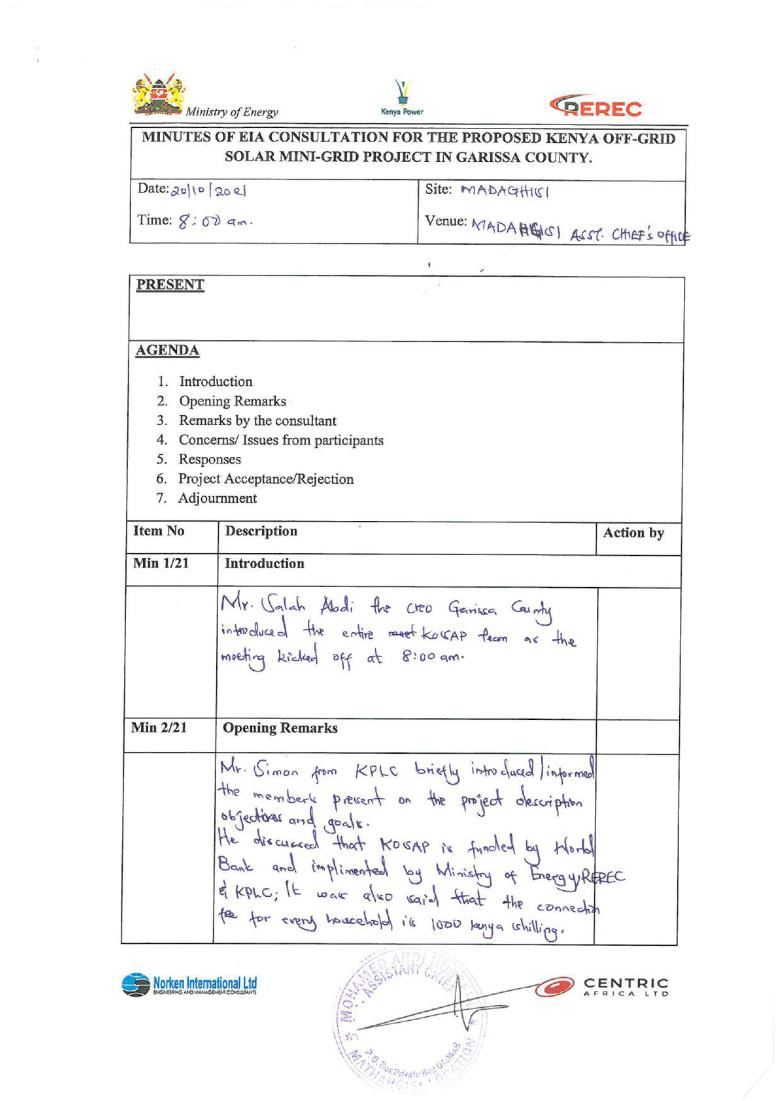 Ministry of Energy
Kenya Power
REREC
MINUTES OF EIA CONSULTATION FOR THE PROPOSED KENYA OFF-GRID
SOLAR MINI-GRID PROJECT IN GARISSA COUNTY.
Date: 20/10/2021
Site: MADAGHISI
Time: 8:00 am.
Venue: MADAHGISI ASST. CHIEF'S OFFICE
PRESENT
AGENDA
1. Introduction
2. Opening Remarks
3. Remarks by the consultant
4. Concerns/ Issues from participants
5. Responses
6. Project Acceptance/Rejection
7. Adjournment
Item No Description Action by
Min 1/21 Introduction
Mr. Salah Abdi the CREO Garissa County
introduced the entire meet KOSAP team as the
meeting kicked off at 8:00 am.
Min 2/21 Opening Remarks
Mr. Simon from KPLC briefly introduced/informed
the members present on the project description
objectives and goals.
He discussed that KOSAP is funded by World
Bank and implimented by Ministry of Energy/REREC
& KPLC; It was also said that the connection
fee for every household is 1000 kenya shilling.
Norken International Ltd
ENGINEERING AND MANAGEMENT CONSULTANTS
ASSISTANT CHIEF
LOCATION
CENTRIC
AFRICA LTD